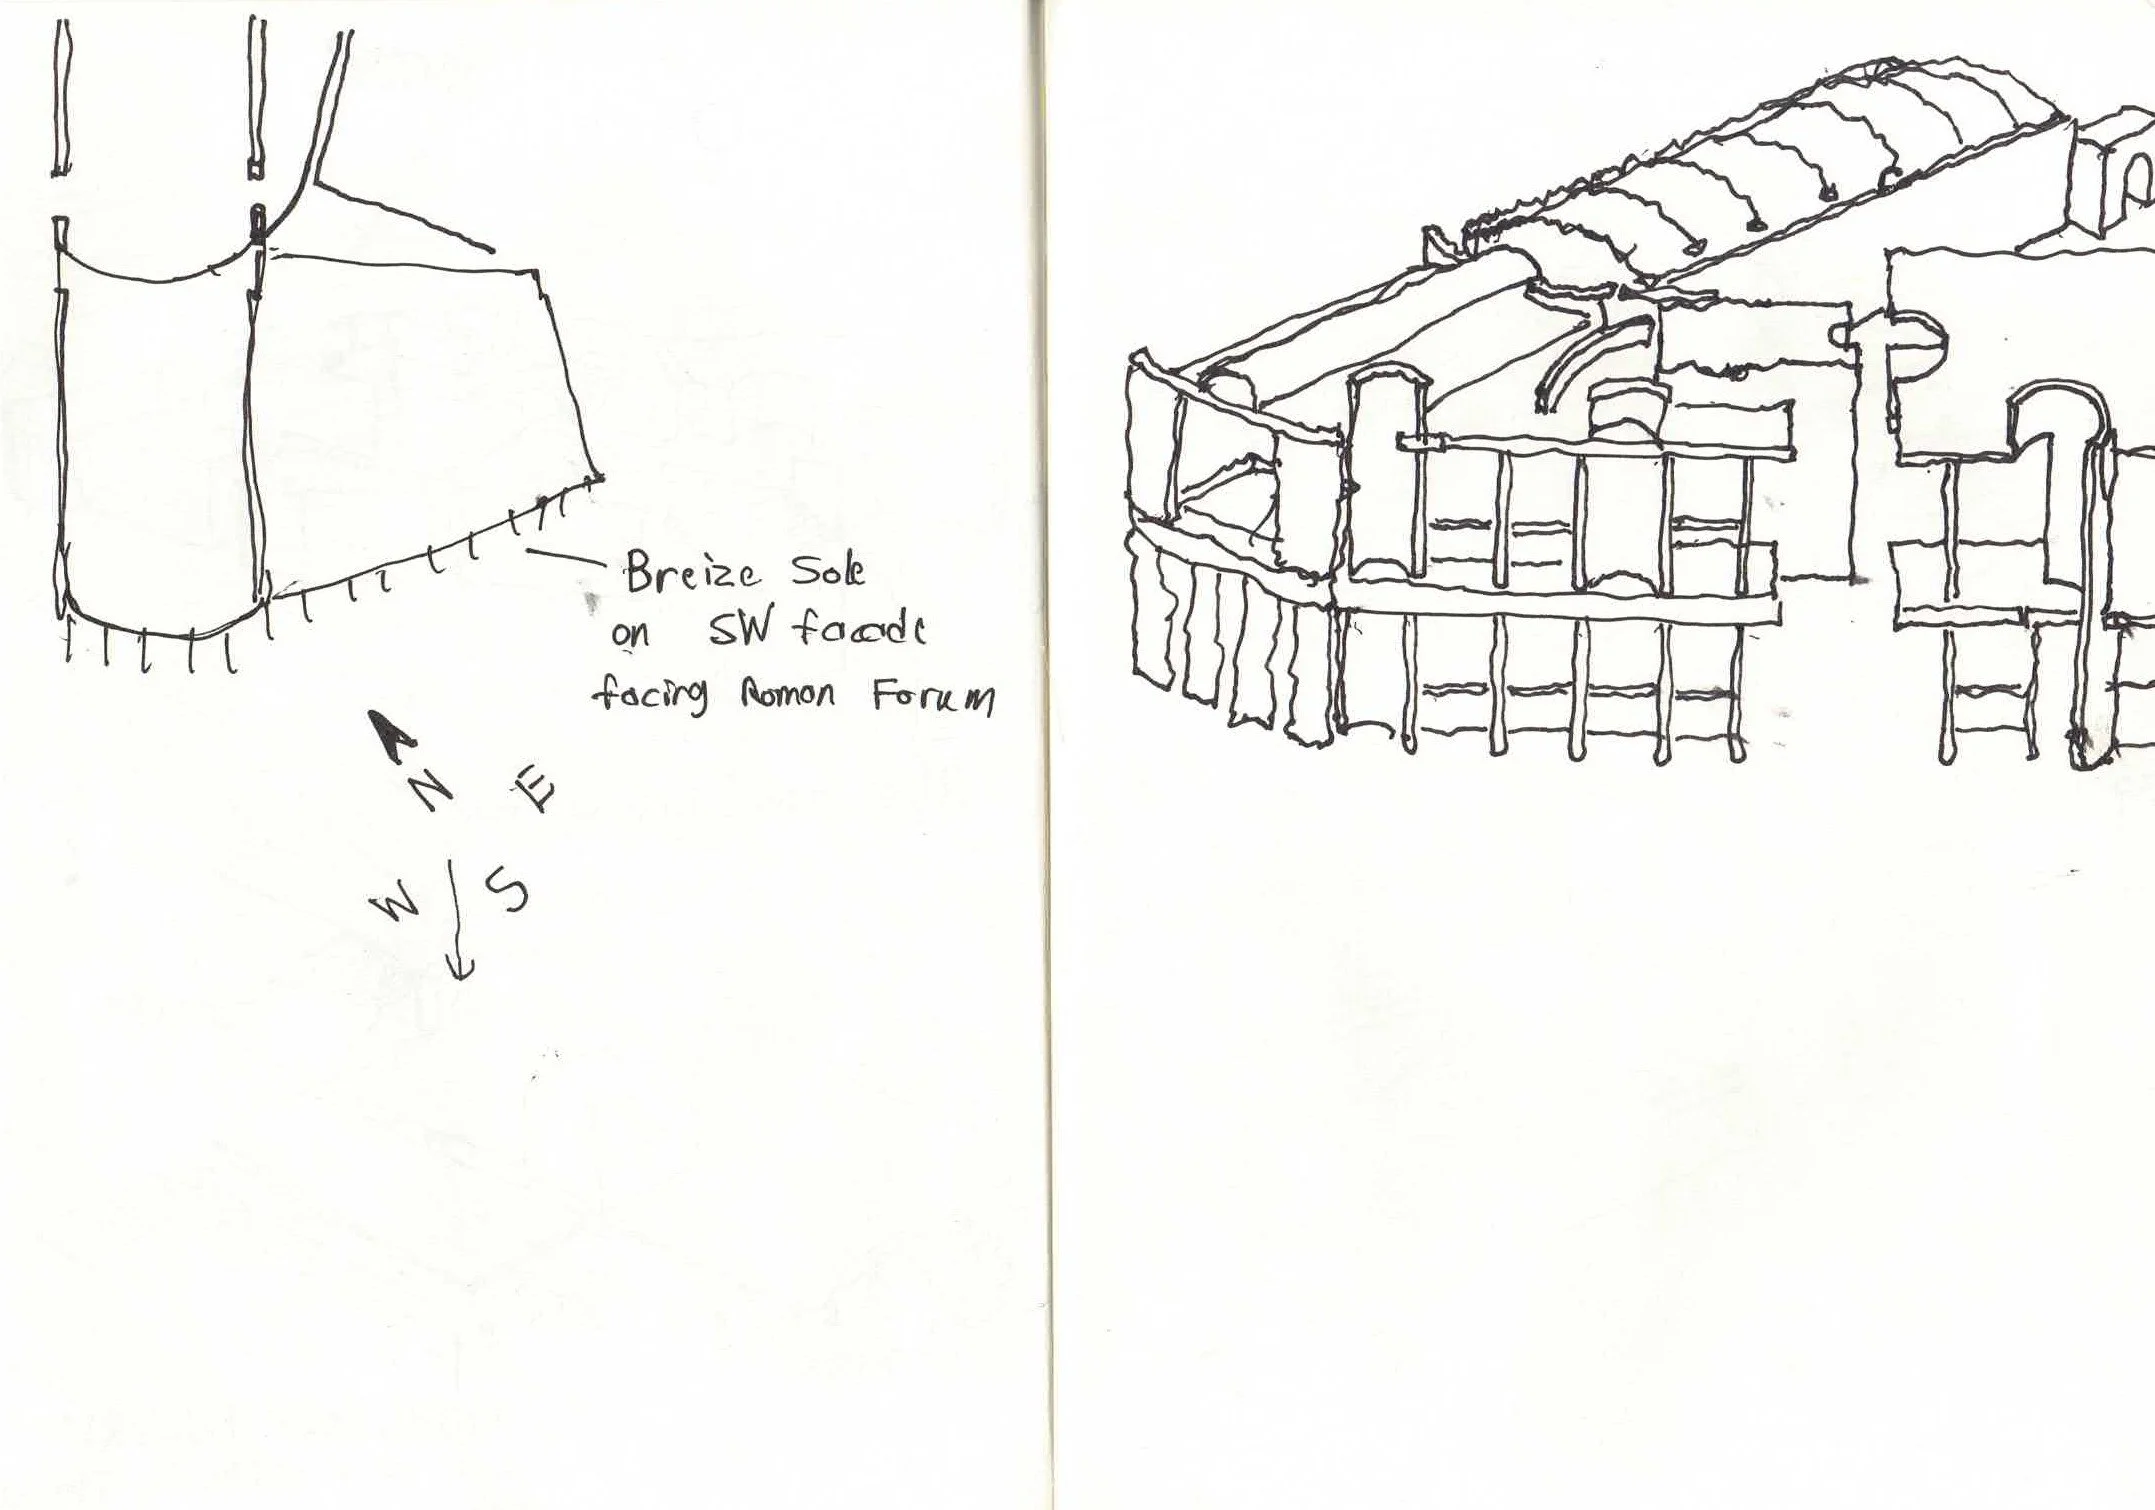 Breize Sole
on SW facade
facing Roman Forum
N
E
W
S